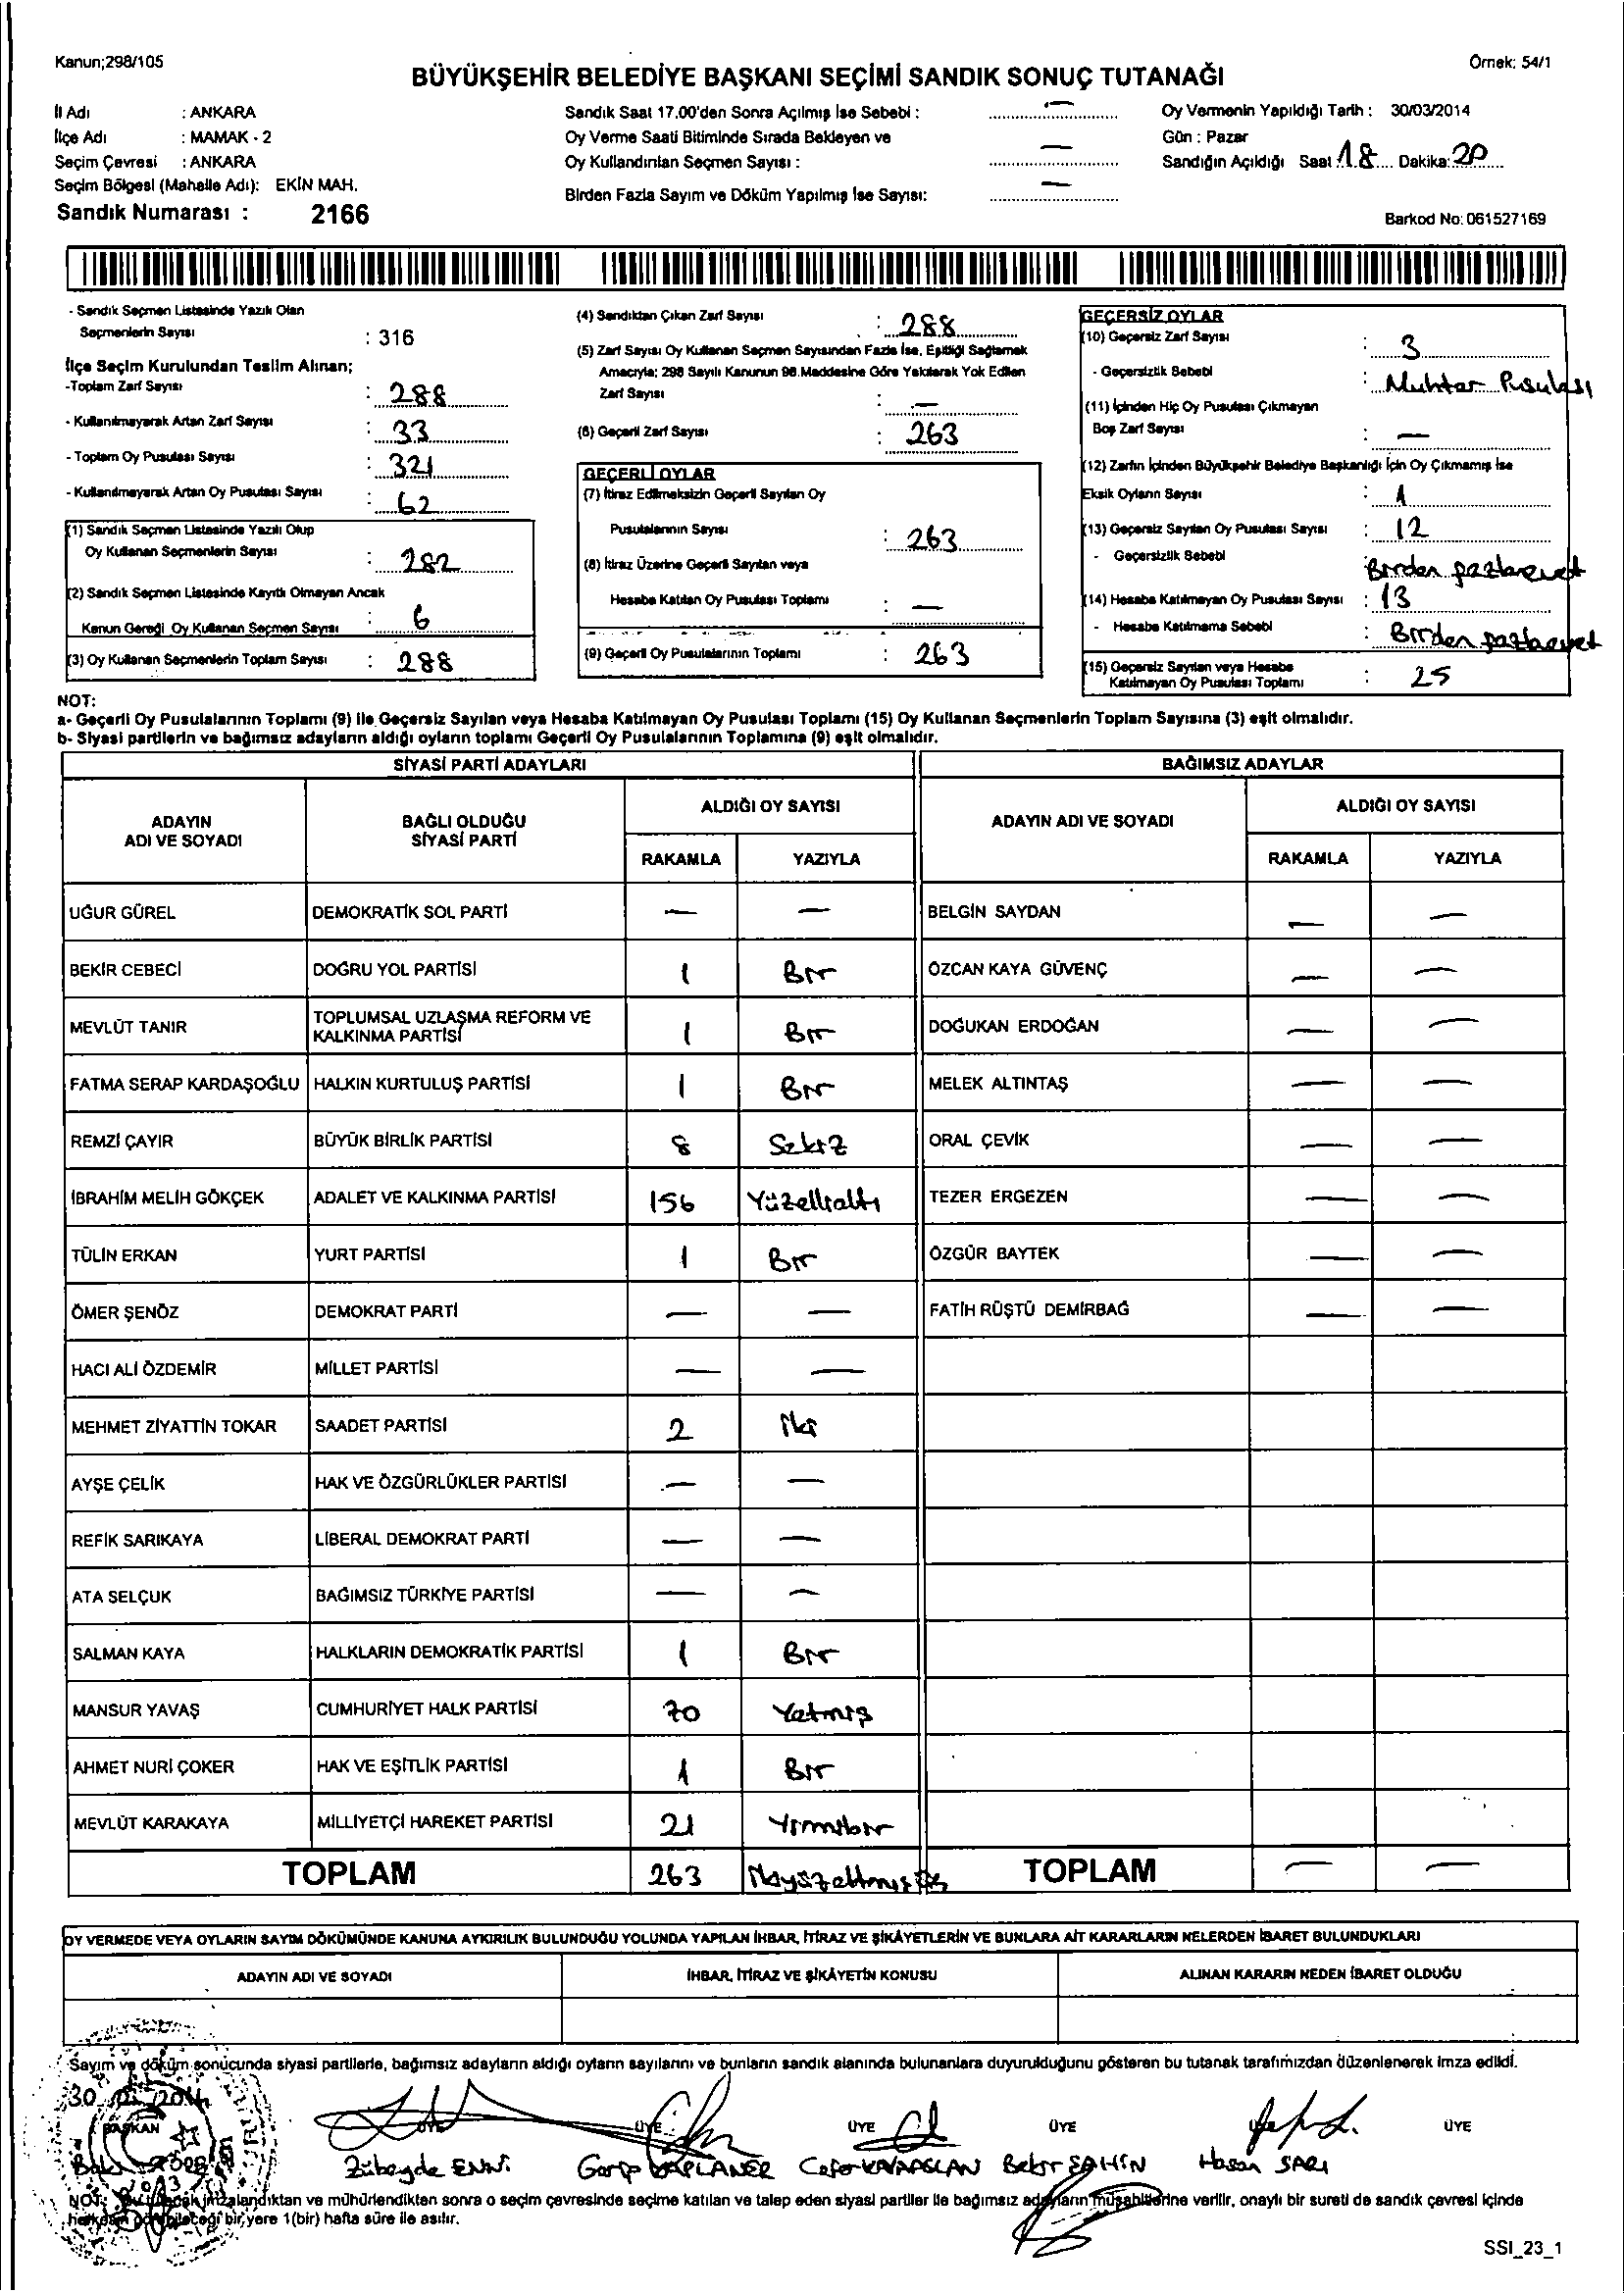 Kanun;298/105
Örnek: 54/1
BÜYÜKŞEHİR BELEDİYE BAŞKANI SEÇİMİ SANDIK SONUÇ TUTANAĞI
İl Adı : ANKARA
İlçe Adı : MAMAK - 2
Seçim Çevresi : ANKARA
Seçim Bölgesi (Mahalle Adı): EKİN MAH.
Sandık Numarası : 2166
Sandık Saat 17.00'den Sonra Açılmış İse Sebebi : —
Oy Verme Saati Bitiminde Sırada Bekleyen ve
Oy Kullandırılan Seçmen Sayısı : —
Birden Fazla Sayım ve Döküm Yapılmış İse Sayısı: —
Oy Vermenin Yapıldığı Tarih : 30/03/2014
Gün : Pazar
Sandığın Açıldığı Saat 18 Dakika: 20
Barkod No: 061527169
- Sandık Seçmen Listesinde Yazılı Olan
Seçmenlerin Sayısı : 316
İlçe Seçim Kurulundan Teslim Alınan;
-Toplam Zarf Sayısı : 288
- Kullanılmayarak Artan Zarf Sayısı : 33
- Toplam Oy Pusulası Sayısı : 321
- Kullanılmayarak Artan Oy Pusulası Sayısı : 62
(1) Sandık Seçmen Listesinde Yazılı Olup
Oy Kullanan Seçmenlerin Sayısı : 282
(2) Sandık Seçmen Listesinde Kayıtlı Olmayan Ancak
Kanun Gereği Oy Kullanan Seçmen Sayısı : 6
(3) Oy Kullanan Seçmenlerin Toplam Sayısı : 288
(4) Sandıktan Çıkan Zarf Sayısı : 288
(5) Zarf Sayısı Oy Kullanan Seçmen Sayısından Fazla İse, Eşitliği Sağlamak
Amacıyla; 298 Sayılı Kanunun 98.Maddesine Göre Yakılarak Yok Edilen
Zarf Sayısı : —
(6) Geçerli Zarf Sayısı : 263
GEÇERLİ OYLAR
(7) İtiraz Edilmeksizin Geçerli Sayılan Oy
Pusulalarının Sayısı : 263
(8) İtiraz Üzerine Geçerli Sayılan veya
Hesaba Katılan Oy Pusulası Toplamı : —
(9) Geçerli Oy Pusulalarının Toplamı : 263
GEÇERSİZ OYLAR
(10) Geçersiz Zarf Sayısı : 3
- Geçersizlik Sebebi : Muhtar Pusulası
(11) İçinden Hiç Oy Pusulası Çıkmayan
Boş Zarf Sayısı : —
(12) Zarfın İçinden Büyükşehir Belediye Başkanlığı İçin Oy Çıkmamış İse
Eksik Oyların Sayısı : 1
(13) Geçersiz Sayılan Oy Pusulası Sayısı : 12
- Geçersizlik Sebebi : Birden pazlaevet
(14) Hesaba Katılmayan Oy Pusulası Sayısı : 13
- Hesaba Katılmama Sebebi : Birden pazlaevet
(15) Geçersiz Sayılan veya Hesaba
Katılmayan Oy Pusulası Toplamı : 25
NOT:
a- Geçerli Oy Pusulalarının Toplamı (9) ile Geçersiz Sayılan veya Hesaba Katılmayan Oy Pusulası Toplamı (15) Oy Kullanan Seçmenlerin Toplam Sayısına (3) eşit olmalıdır.
b- Siyasi partilerin ve bağımsız adayların aldığı oyların toplamı Geçerli Oy Pusulalarının Toplamına (9) eşit olmalıdır.
SİYASİ PARTİ ADAYLARI BAĞIMSIZ ADAYLAR
ADAYIN ADI VE SOYADI BAĞLI OLDUĞU SİYASİ PARTİ ALDIĞI OY SAYISI ADAYIN ADI VE SOYADI ALDIĞI OY SAYISI
RAKAMLA YAZIYLA RAKAMLA YAZIYLA
UĞUR GÜREL DEMOKRATİK SOL PARTİ — — BELGİN SAYDAN — —
BEKİR CEBECİ DOĞRU YOL PARTİSİ 1 Bir ÖZCAN KAYA GÜVENÇ — —
MEVLÜT TANIR TOPLUMSAL UZLAŞMA REFORM VE KALKINMA PARTİSİ 1 Bir DOĞUKAN ERDOĞAN — —
FATMA SERAP KARDAŞOĞLU HALKIN KURTULUŞ PARTİSİ 1 Bir MELEK ALTINTAŞ — —
REMZİ ÇAYIR BÜYÜK BİRLİK PARTİSİ 8 Sekiz ORAL ÇEVİK — —
İBRAHİM MELİH GÖKÇEK ADALET VE KALKINMA PARTİSİ 156 Yüzellialtı TEZER ERGEZEN — —
TÜLİN ERKAN YURT PARTİSİ 1 Bir ÖZGÜR BAYTEK — —
ÖMER ŞENÖZ DEMOKRAT PARTİ — — FATİH RÜŞTÜ DEMİRBAĞ — —
HACI ALİ ÖZDEMİR MİLLET PARTİSİ — —
MEHMET ZİYATTİN TOKAR SAADET PARTİSİ 2 iki
AYŞE ÇELİK HAK VE ÖZGÜRLÜKLER PARTİSİ — —
REFİK SARIKAYA LİBERAL DEMOKRAT PARTİ — —
ATA SELÇUK BAĞIMSIZ TÜRKİYE PARTİSİ — —
SALMAN KAYA HALKLARIN DEMOKRATİK PARTİSİ 1 Bir
MANSUR YAVAŞ CUMHURİYET HALK PARTİSİ 70 Yetmiş
AHMET NURİ ÇOKER HAK VE EŞİTLİK PARTİSİ 1 Bir
MEVLÜT KARAKAYA MİLLİYETÇİ HAREKET PARTİSİ 21 Yirmibir
TOPLAM 263 TOPLAM — —
OY VERMEDE VEYA OYLARIN SAYIM DÖKÜMÜNDE KANUNA AYKIRILIK BULUNDUĞU YOLUNDA YAPILAN İHBAR, İTİRAZ VE ŞİKÂYETLERİN VE BUNLARA AİT KARARLARIN NELERDEN İBARET BULUNDUKLARI
ADAYIN ADI VE SOYADI İHBAR, İTİRAZ VE ŞİKÂYETİN KONUSU ALINAN KARARIN NEDEN İBARET OLDUĞU
Sayım ve döküm sonucunda siyasi partilerle, bağımsız adayların aldığı oyların sayılarını ve bunların sandık alanında bulunanlara duyurulduğunu gösteren bu tutanak tarafımızdan düzenlenerek imza edildi.
BAŞKAN ÜYE ÜYE ÜYE ÜYE ÜYE
Zübeyde Garip KAPLANER Cafer KAYAASLAN Bekir ŞAHİN Hasan SARI
NOT: Bu tutanak imzalandıktan ve mühürlendikten sonra o seçim çevresinde seçime katılan ve talep eden siyasi partiler ile bağımsız adayların müşahitlerine verilir, onaylı bir sureti de sandık çevresi içinde
herkesin görebileceği bir yere 1(bir) hafta süre ile asılır.
SSI_23_1